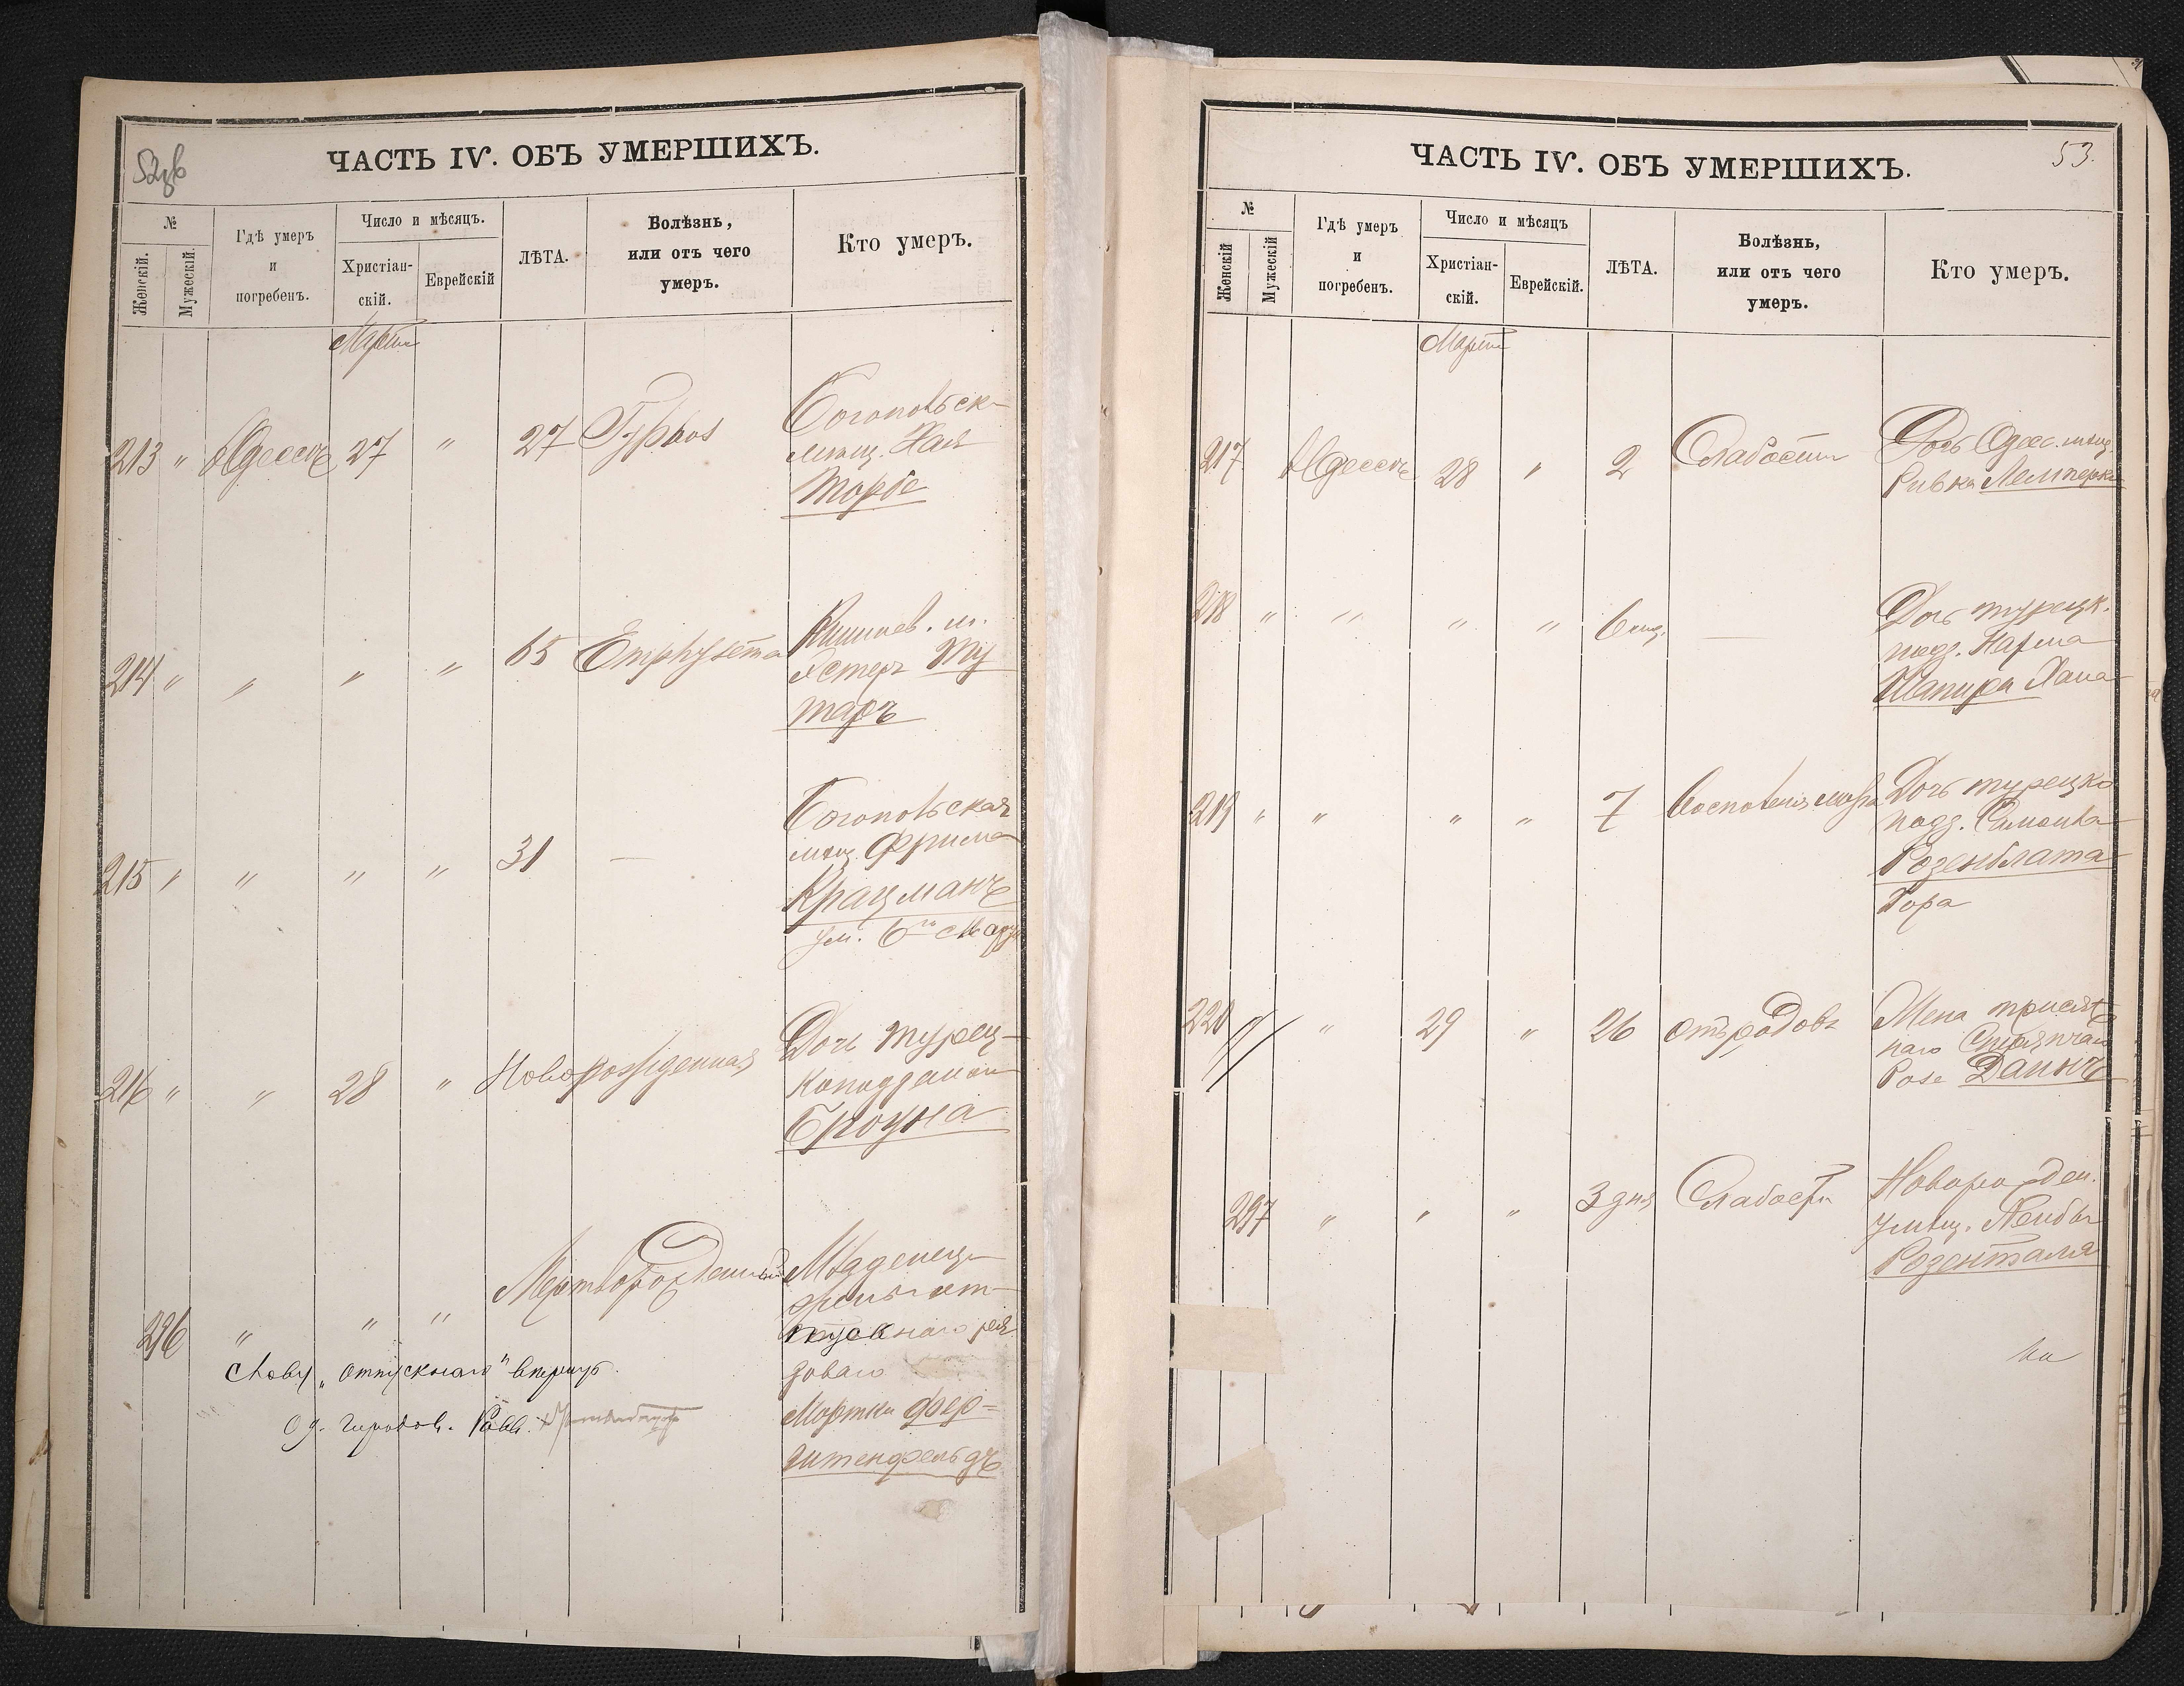 52зв
ЧАСТЬ IV. ОБЪ УМЕРШИХЪ.
№
Женскій.
Мужескій.
Гдѣ умеръ
и
погребенъ.
Число и мѣсяцъ.
Христіан-
скій.
Еврейскій
ЛѢТА.
Болѣзнь,
или отъ чего
умеръ.
Кто умеръ.
Мартъ
213 " Одессѣ 27 " 27 Typhus
Богопольск.
мѣщ. Хая
Торбе
214 " " " " 65 Emphysema
Кишинев. м.
Эстеръ Му
таръ
215 " " " " 31 —
Богопольская
мѣщ. Фрима
Крацманъ
ум. 6го Марта
216 " " 28 " Новорожденная
Дочь турец-
коподдан
Броуна
296 " " " Мертворожденный
Младенецъ
отпускнаго ря
доваго
Мортки Фер=
штенфельдъ
Слову „отпускнаго" вѣрить
Од. Городов. Равв.
53.
ЧАСТЬ IV. ОБЪ УМЕРШИХЪ.
№
Женскій
Мужескій
Гдѣ умеръ
и
погребенъ.
Число и мѣсяцъ
Христіан-
скій.
Еврейскій.
ЛѢТА.
Болѣзнь,
или отъ чего
умеръ.
Кто умеръ.
Мартъ
217 Одессѣ 28 " 2 Слабости
Дочь Одес. мѣщ.
Ривка Лемперъ
218 " " " " 6 мѣс. —
Дочь турецк.
подд.
Шапира Хана
219 " " " " 7
Дочь турецко
подд. Симона
Розенблата
Дора
220 " 29 " 26 отъ родовъ
Жена присяж
наго Стряпчаго
Розе
297 " " " 3 дня Слабости
Новорожден.
мѣщ. Лейбы
Розенталя